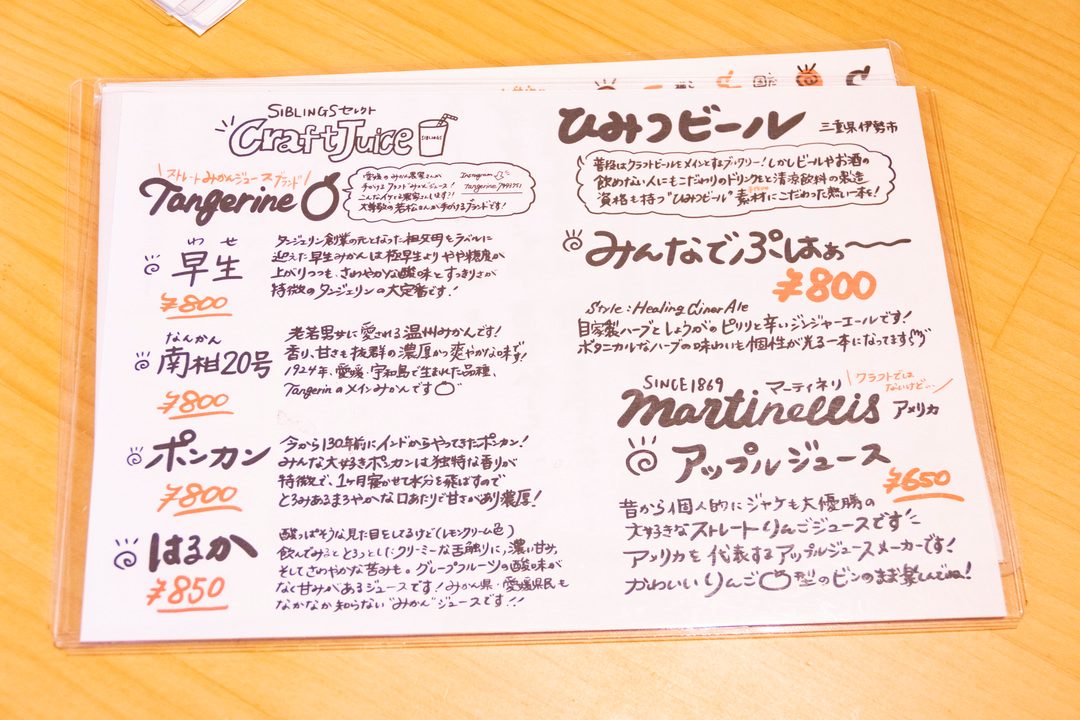 SIBLINGSセレクト
CraftJuice
SIBLINGS
ストレートみかんジュースブランド
Tangerine
愛媛のみかん農家さんが
手がけるクラフトみかんジュース!
大尊敬の若松さんが手がけるブランドです!
Instagram
わせ
早生
¥800
タンジェリン創業の元となった祖父母をラベルに
迎えた早生みかんは極早生よりやや糖度が
上がりつつも、さわやかな酸味とすっきりさが
特徴のタンジェリンの大定番です!
なんかん
南柑20号
¥800
老若男女に愛される温州みかんです!
香り、甘さも抜群の濃厚かつ爽やかな味です!
1924年、愛媛・宇和島で生まれた品種、
Tangerinのメインみかんです
ポンカン
¥800
今から130年前にインドからやってきたポンカン!
みんな大好きポンカンは独特な香りが
特徴で、1ヶ月寝かせて水分を飛ばすので
とろみあるまろやかな口あたりで甘さがあり濃厚!
はるか
¥850
酸っぱそうな見た目をしてるけど(レモンクリーム色)
飲んでみるととろっとしたクリーミーな舌触りに、濃い甘み、
そしてさわやかな苦みも。グレープフルーツの酸味が
なく甘みがあるジュースです!みかん県・愛媛県民も
なかなか知らない"みかん"ジュースです!!
ひみつビール 三重県伊勢市
普段はクラフトビールをメインとするブルワリー!しかしビールやお酒の
飲めない人にもこだわりのドリンクをと清涼飲料の製造
資格も持つ"ひみつビール"素材にこだわった熱い一本を!
みんなでぷはぁ〜
¥800
Style:Healing Giner Ale
自家製ハーブとしょうがのピリリと辛いジンジャーエールです!
ボタニカルなハーブの味わいも個性が光る一本になってます
SINCE1869 マーティネリ
クラフトでは
ないけど…
martinellis アメリカ
アップルジュース
¥650
昔から個人的にジャケも大優勝の
大好きなストレートりんごジュースです
アメリカを代表するアップルジュースメーカーです!
かわいいりんご型のビンのまま楽しんでね!